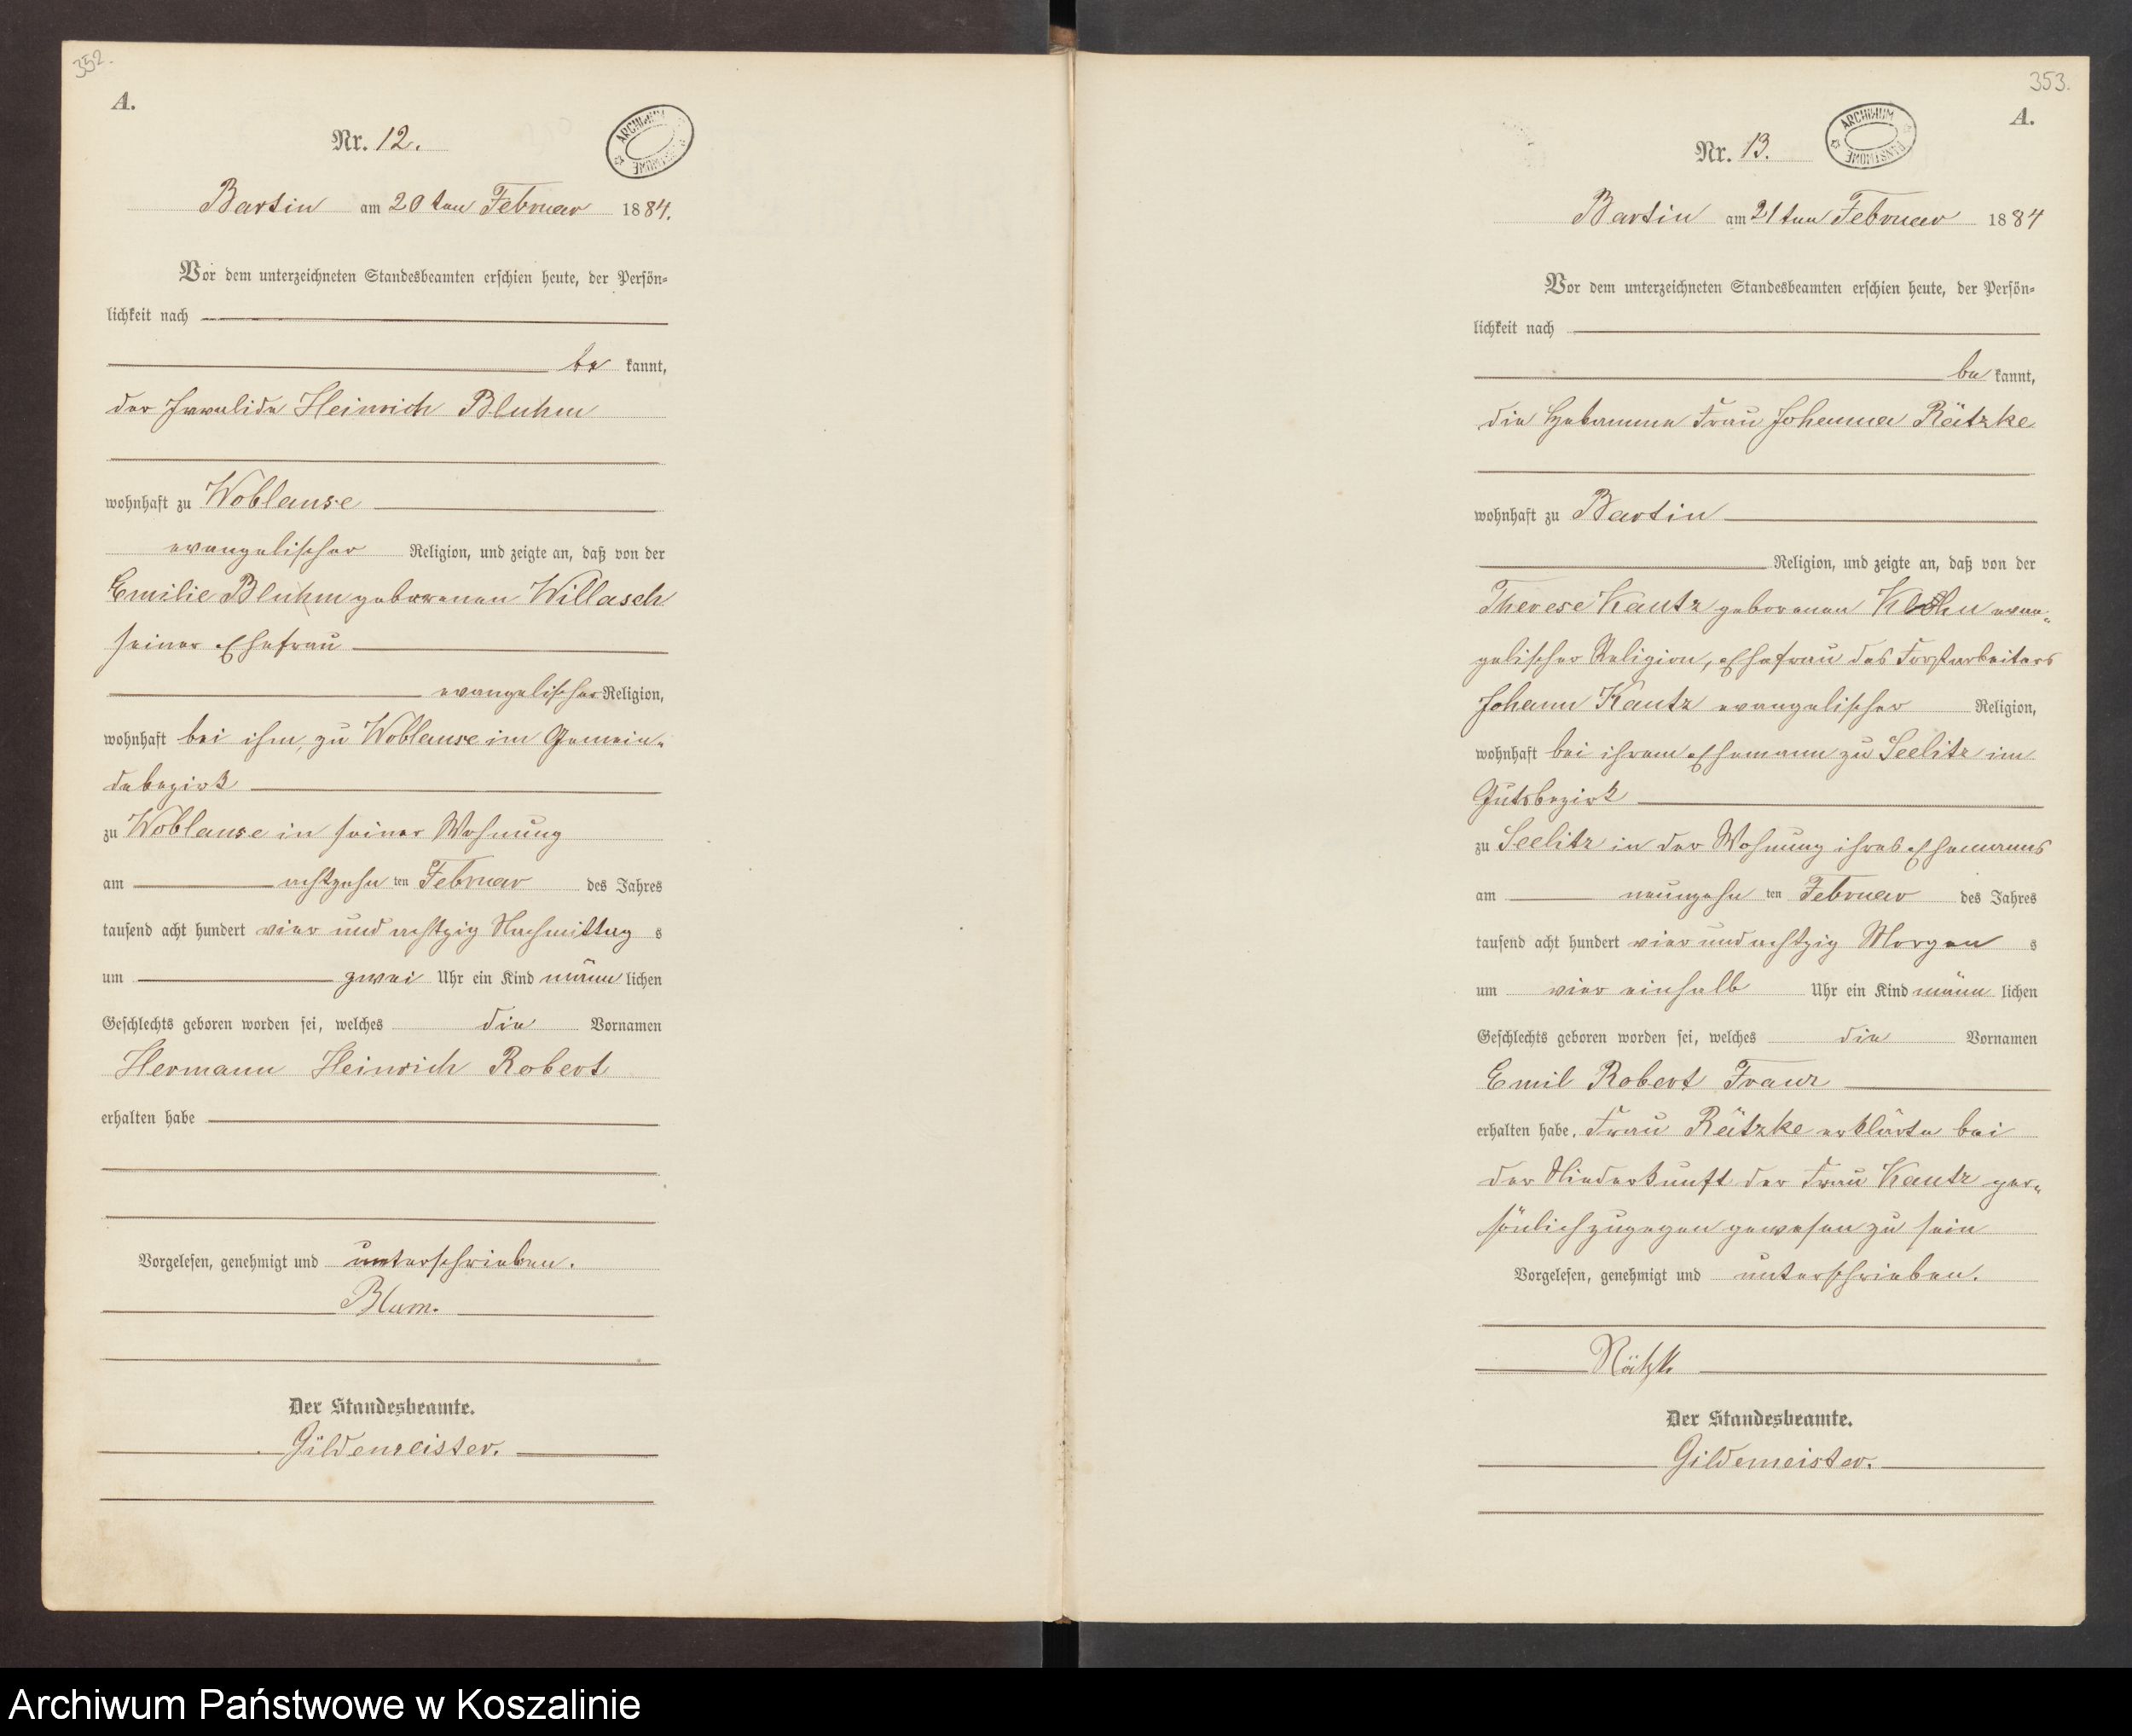 352.
A.
Nr. 12.
ARCHIWUM PAŃSTWOWE
Bartin am 20 ten Februar 1884.
Vor dem unterzeichneten Standesbeamten erschien heute, der Persön-
lichkeit nach
be kannt,
der Invalide Heinrich Bluhm
wohnhaft zu Woblanse
evangelischer Religion, und zeigte an, daß von der
Emilie Bluhm geborenen Willasch
seiner Ehefrau
evangelischer Religion,
wohnhaft bei ihm, zu Woblanse im Gemein-
debezirk
zu Woblanse in seiner Wohnung
am achtzehn ten Februar des Jahres
tausend acht hundert vier und achtzig Nachmittag s
um zwei Uhr ein Kind männ lichen
Geschlechts geboren worden sei, welches die Vornamen
Hermann Heinrich Robert
erhalten habe
Vorgelesen, genehmigt und unterschrieben.
Blum.
Der Standesbeamte.
Gildemeister.
353.
A.
Nr. 13.
ARCHIWUM PAŃSTWOWE
Bartin am 21 ten Februar 1884
Vor dem unterzeichneten Standesbeamten erschien heute, der Persön-
lichkeit nach
be kannt,
die Hebamme Frau Johanna Rätzke
wohnhaft zu Bartin
Religion, und zeigte an, daß von der
Therese Kautz geborenen evan-
gelischer Religion, Ehefrau des Forstarbeiters
Johann Kautz evangelischer Religion,
wohnhaft bei ihrem Ehemann zu Seelitz im
Gutsbezirk
zu Seelitz in der Wohnung ihres Ehemanns
am neunzehn ten Februar des Jahres
tausend acht hundert vier und achtzig Morgen s
um vier einhalb Uhr ein Kind männ lichen
Geschlechts geboren worden sei, welches die Vornamen
Emil Robert Franz
erhalten habe. Frau Rätzke erklärte bei
der Niederkunft der Frau Kautz per-
sönlich zugegen gewesen zu sein
Vorgelesen, genehmigt und unterschrieben.
Rätzk
Der Standesbeamte.
Gildemeister.
Archiwum Państwowe w Koszalinie